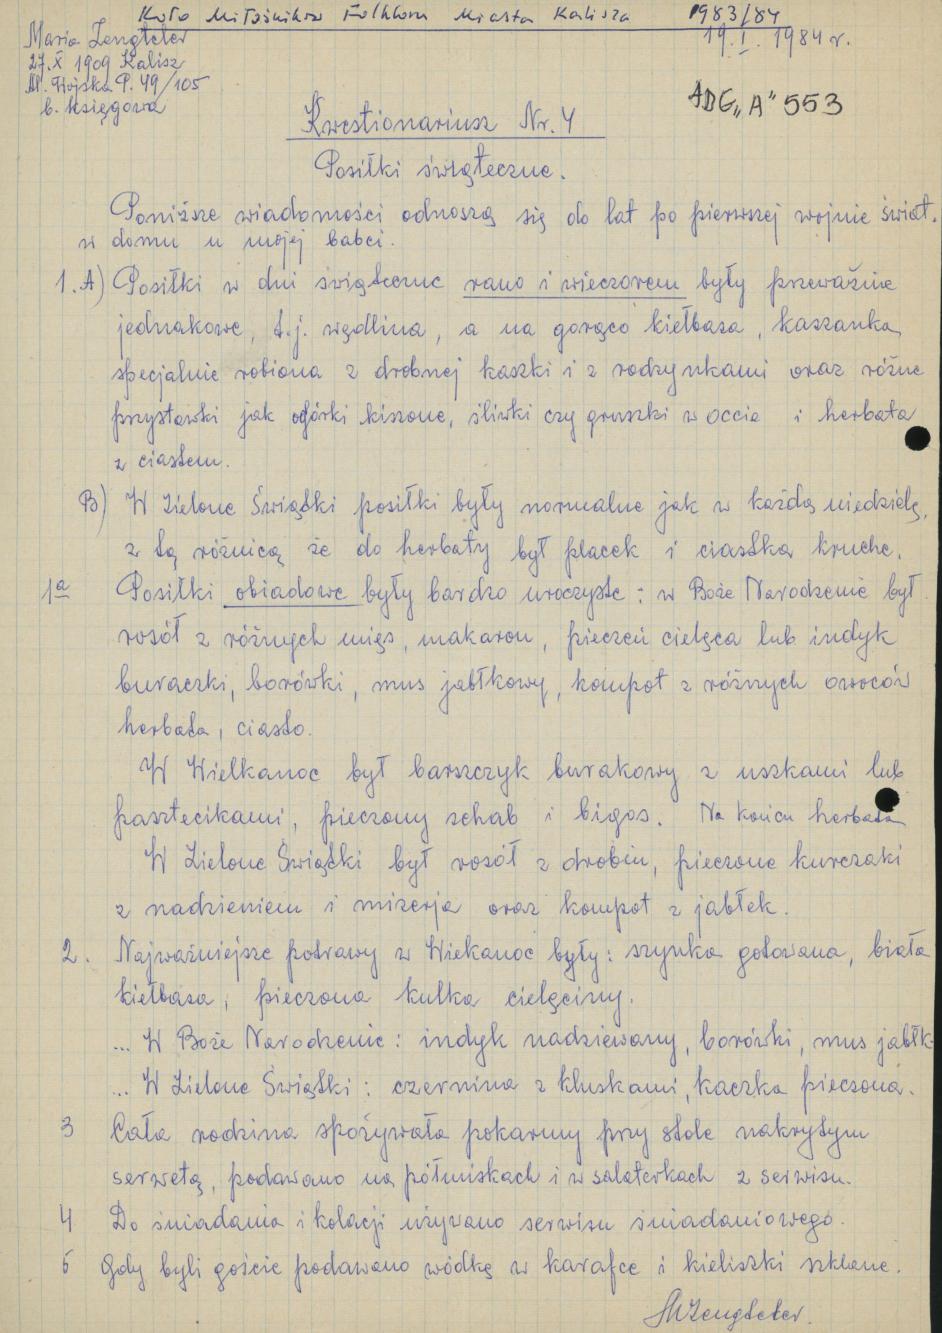 Koło Miłośników Folkloru Miasta Kalisza 1983/84
Maria Zengteler
19.I.1984 r.
27.X 1909 Kalisz
P. 49/105
b. księgowa
ADG „A" 553
Kwestionariusz Nr. 4
Posiłki świąteczne.
Poniższe wiadomości odnoszą się do lat po pierwszej wojnie świat.
w domu u mojej babci.
1. A) Posiłki w dni świąteczne rano i wieczorem były przeważnie
jednakowe, t.j. wędlina, a na gorąco kiełbasa, kaszanka
specjalnie robiona z drobnej kaszki i z rodzynkami oraz różne
przystawki jak ogórki kiszone, śliwki czy gruszki w occie i herbata
z ciastem.
B) W Zielone Świątki posiłki były normalne jak w każdą niedzielę,
z tą różnicą że do herbaty był placek i ciastka kruche.
1a Posiłki obiadowe były bardzo uroczyste: w Boże Narodzenie był
rosół z różnych mięs, makaron, pieczeń cielęca lub indyk
buraczki, borówki, mus jabłkowy, kompot z różnych owoców
herbata, ciasto.
W Wielkanoc był barszczyk burakowy z uszkami lub
pasztecikami, pieczony schab i bigos. Na końcu herbata
W Zielone Świątki był rosół z drobiu, pieczone kurczaki
z nadzieniem i mizerja oraz kompot z jabłek.
2. Najważniejsze potrawy w Wiekanoc były: szynka gotowana, biała
kiełbasa, pieczona kulka cielęciny.
... W Boże Narodzenie: indyk nadziewany, borówki, mus jabłk.
... W Zielone Świątki: czernina z kluskami, kaczka pieczona.
3 Cała rodzina spożywała pokarmy przy stole nakrytym
serwetą, podawano na półmiskach i w salaterkach z serwisu.
4 Do śniadania i kolacji używano serwisu śniadaniowego.
5 Gdy byli goście podawano wódkę w karafce i kieliszki szklane.
MZengteler